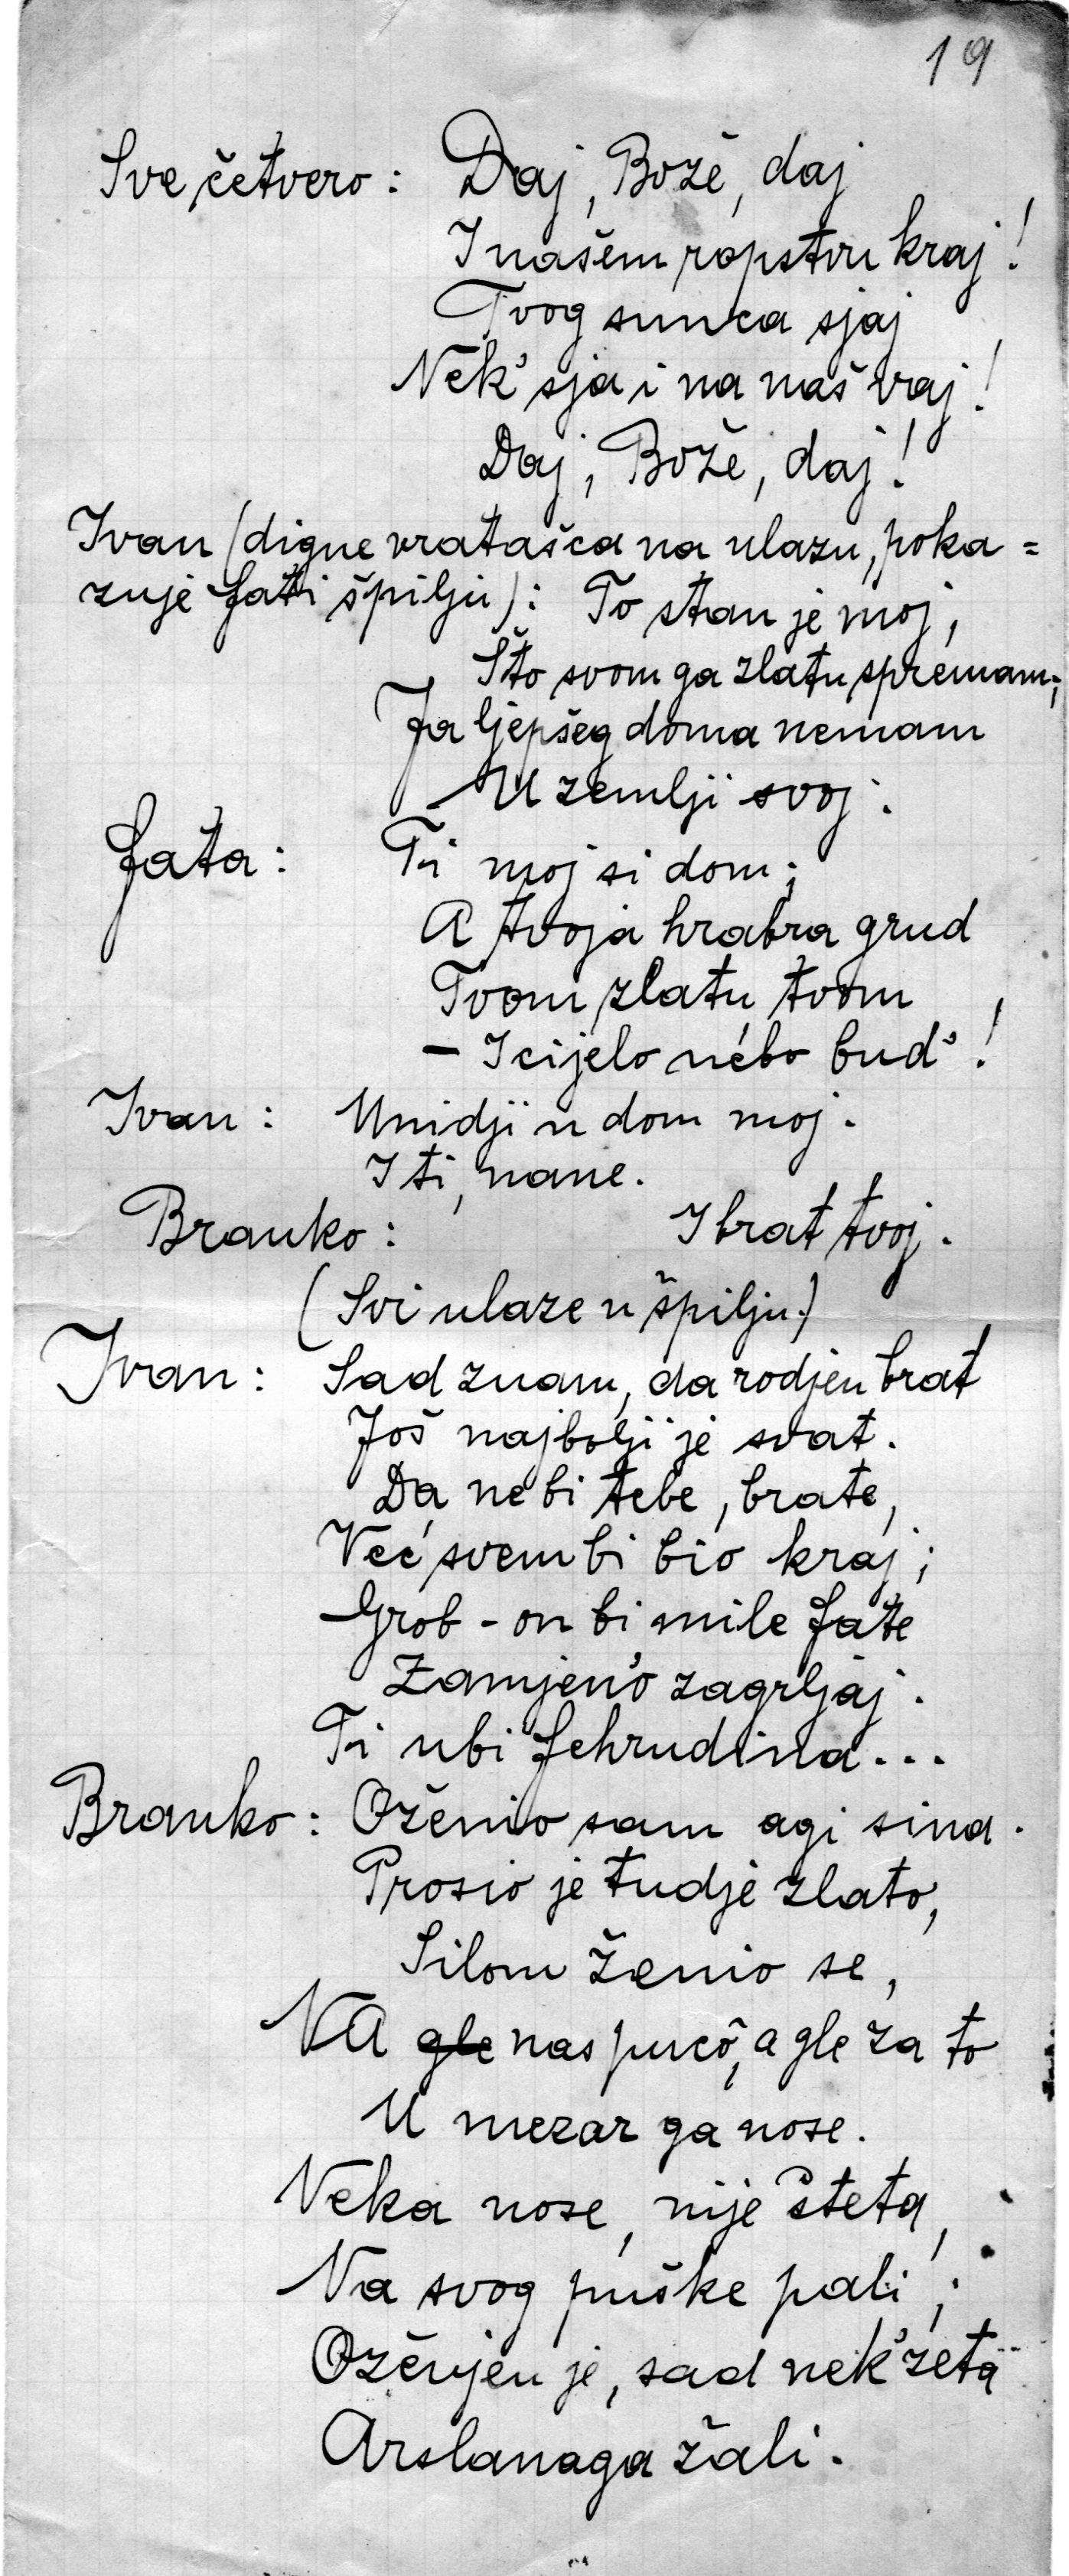 19
Sve četvero: Daj, Bože, daj
I našem ropstvu kraj!
Tvog sunca sjaj
Nek' sja i na naš raj!
Daj, Bože, daj!
Ivan (digne vratašca na ulazu, poka=
zuje Fati špilju): To stan je moj,
Što svom ga zlatu spremam;
Ja ljepšeg doma nemam
U zemlji svoj.
Fata: Ti moj si dom;
A tvoja hrabra grud
Tvom zlatu tvom
– I cijelo nebo bud'!
Ivan: Unidji u dom moj.
I ti, nane.
Branko: I brat tvoj.
(Svi ulaze u špilju.)
Ivan: Sad znam, da rodjen brat
Još najbolji je svat.
Da ne bi tebe, brate,
Već svem bi bio kraj;
Grob - on bi mile Fate
Zamjen'o zagrljaj.
Ti ubi Fehrudina...
Branko: Oženio sam agi sina.
Prosio je tudje zlato,
Silom ženio se,
NA gle nas pucô, a gle za to
U mezar ga nose.
Neka nose, nije šteta,
Na svog puške pali;
Oženjen je, sad nek' zeta
Arslanaga žali.